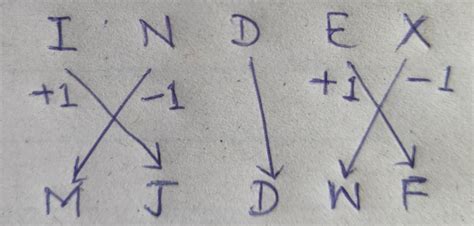 I N D E X
+1 -1 +1 -1
M J D W F